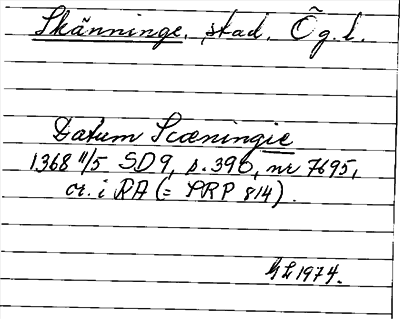 Skänninge, stad, Ög. l.
Datum Scæningie
1368 11/5 SD 9, s. 390, nr 7695,
or. i RA (= SRP 814).
GL 1974.